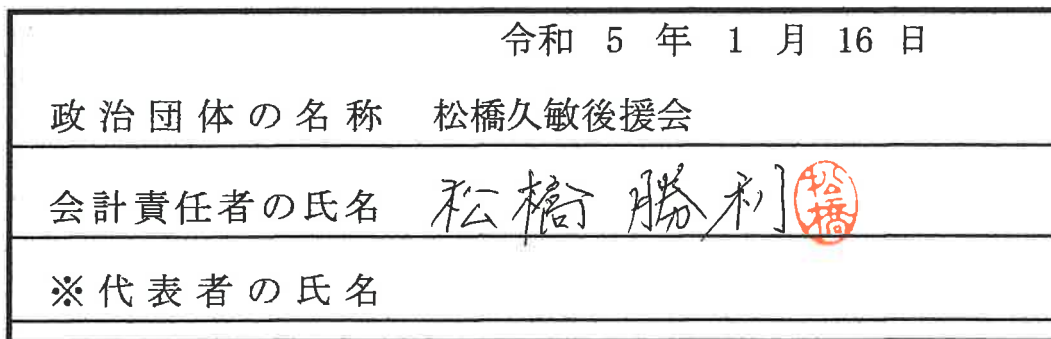 令和 5 年 1 月 16 日
政治団体の名称 松橋久敏後援会
会計責任者の氏名 松橋 勝利 松橋
※代表者の氏名